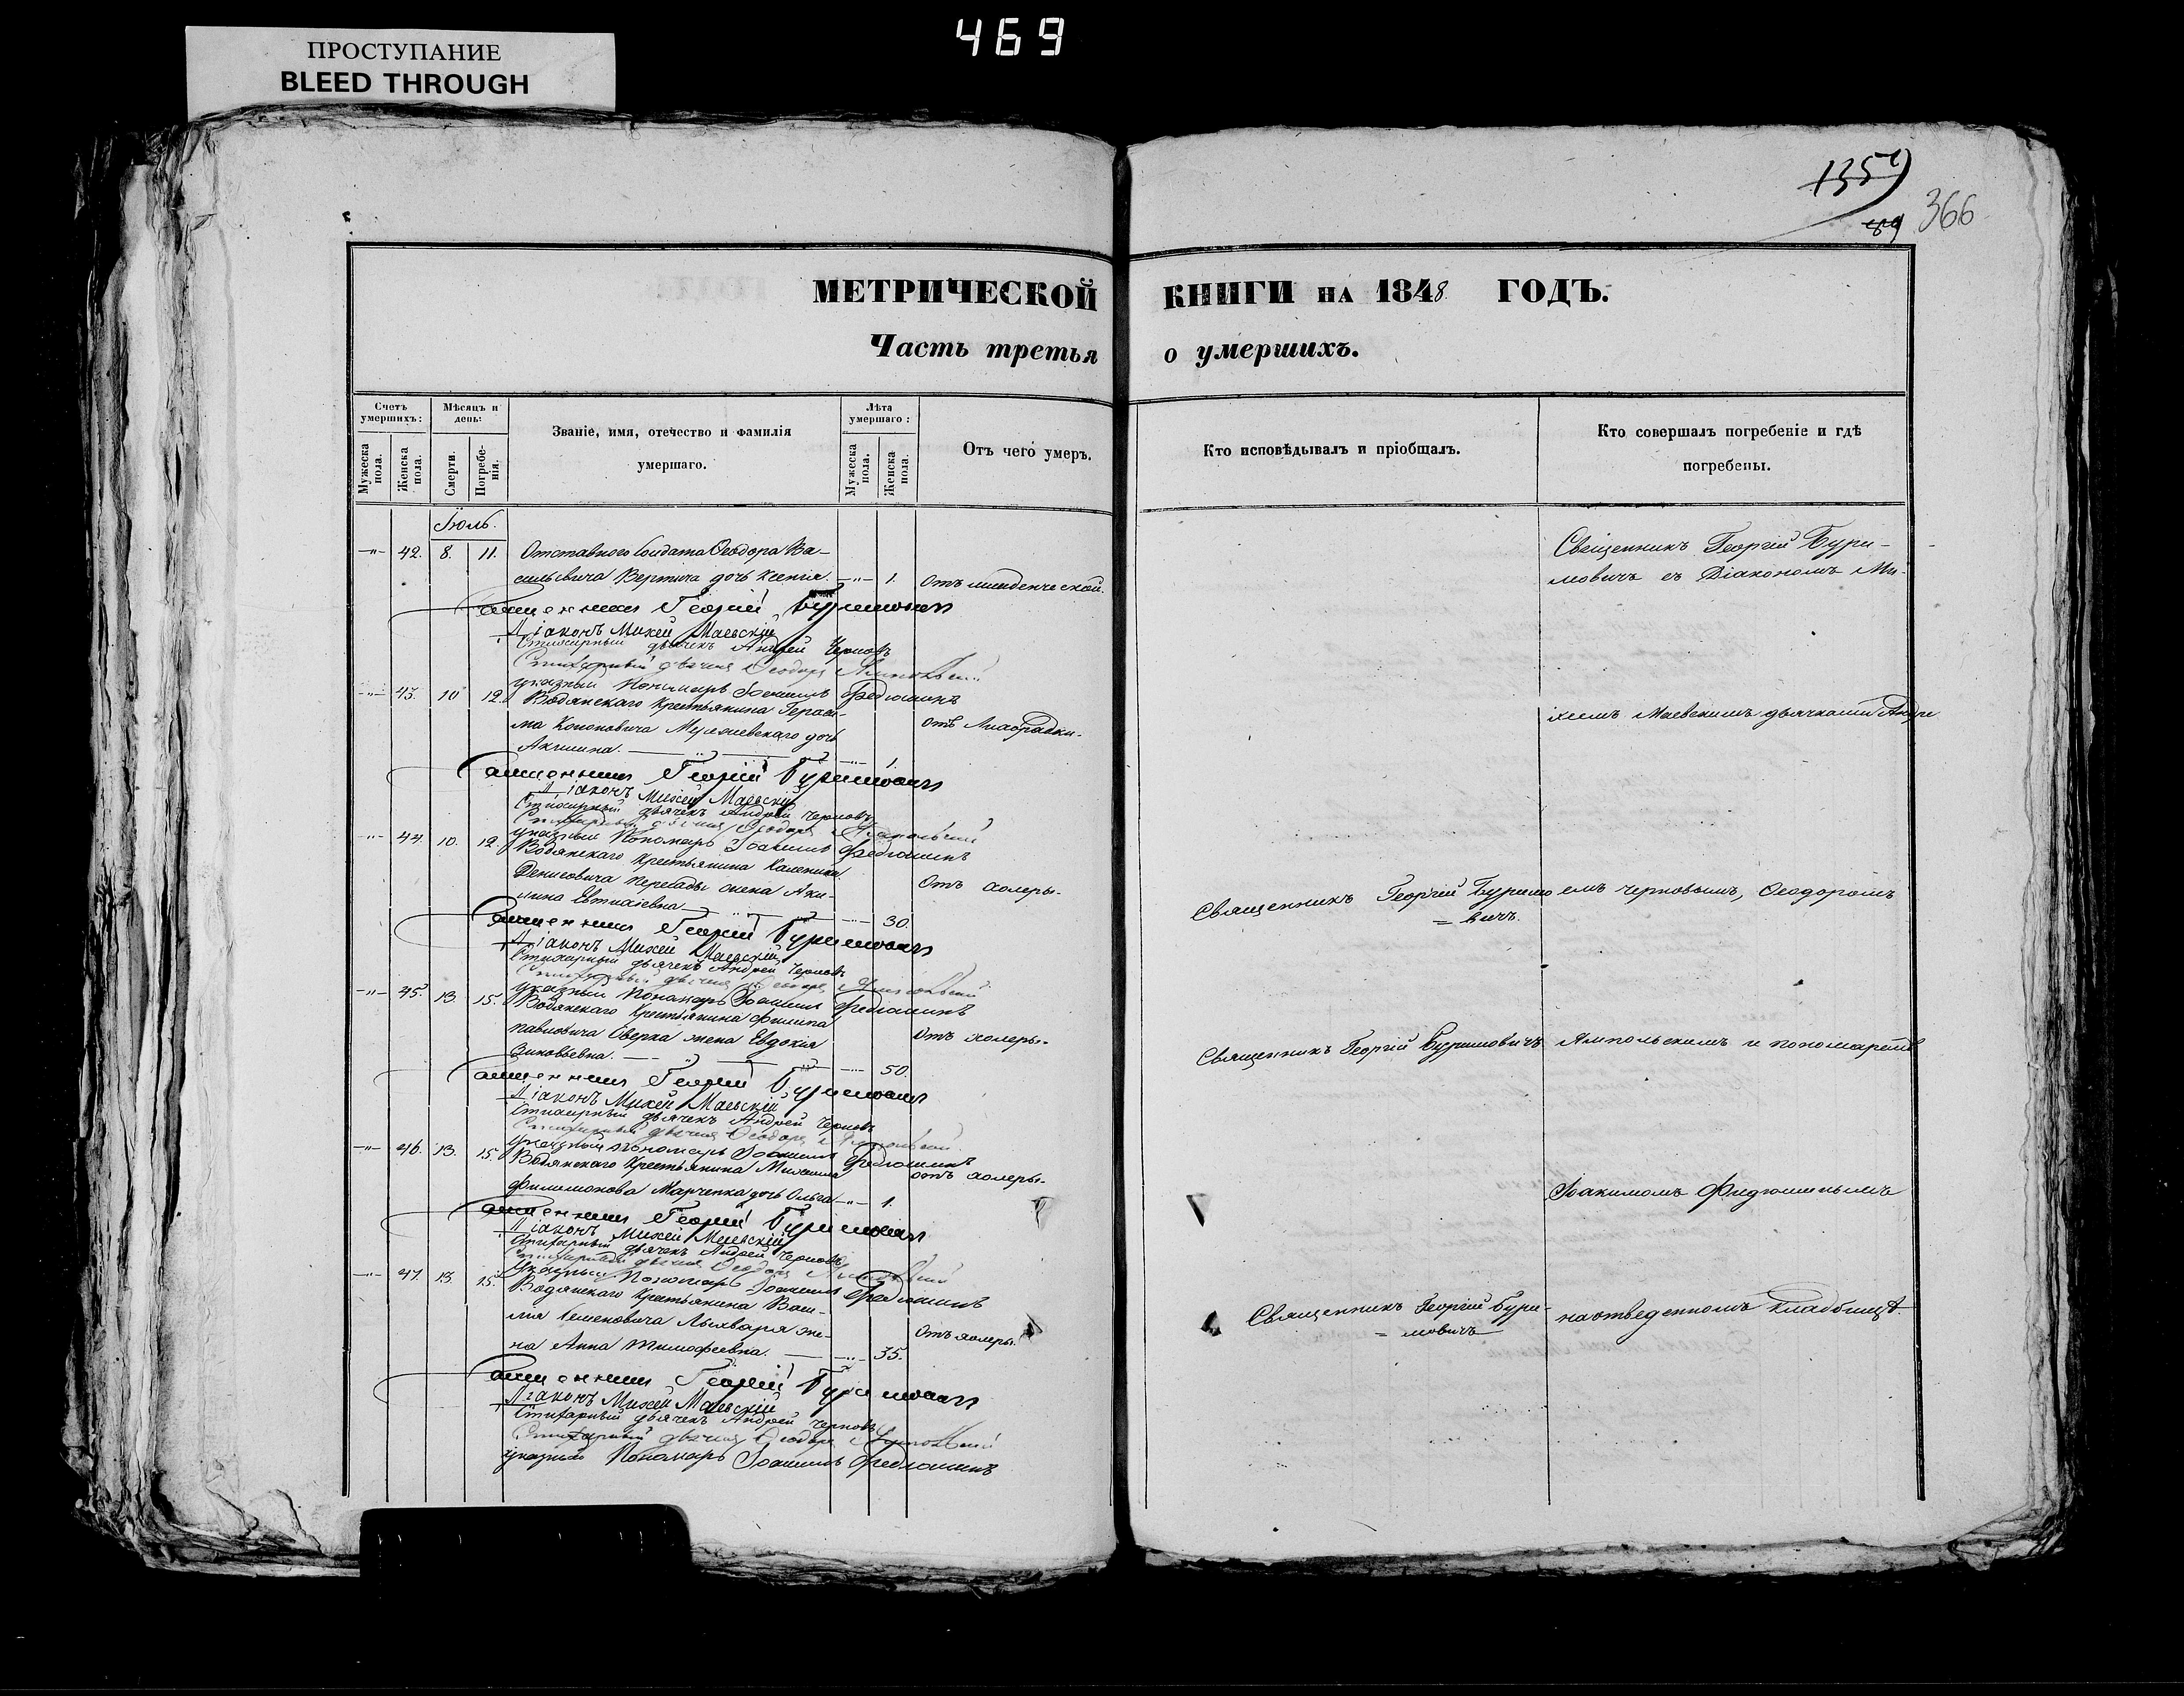 469
ПРОСТУПАНИЕ
BLEED THROUGH
1359
89
366
МЕТРИЧЕСКОЙ КНИГИ НА 1848 ГОДЪ.
Часть третья о умершихъ.
Счетъ умершихъ:
Мѣсяцъ и день:
Званіе, имя, отечество и фамилія умершаго.
Лѣта умершаго:
Отъ чего умеръ.
Кто исповѣдывалъ и пріобщалъ.
Кто совершалъ погребеніе и гдѣ погребены.
Мужеска пола.
Женска пола.
Смерти.
Погребенія.
Мужеска пола.
Женска пола.
Іюль.
42. 8. 11. Отставного Солдата Ѳеодора Ва-
сильевича Вертича дочь Ксенія. 1. Отъ младенческой.
Священникъ Георгій Буримовичъ
Діаконъ Михей Маевскій
Стихарный дьячекъ Андрей Черновъ
Стихарный дьячекъ Ѳеодоръ Ямпольскій
указный Пономарь Іоакимъ Федюшинъ
43. 10 12. Водянскаго Крестьянина Гераси-
ма Кононовича дочь
Акилина. 1.
Священникъ Георгій Буримовичъ
Діаконъ Михей Маевскій
Стихарный дьячекъ Андрей Черновъ
Стихарный дьячекъ Ѳеодоръ Ямпольскій
указный Пономарь Іоакимъ Федюшинъ
44. 10. 12. Водянскаго Крестьянина Каленика
Денисовича жена Аки-
лина Евтихіевна 30. Отъ холеры.
Священникъ Георгій Буримовичъ
Діаконъ Михей Маевскій
Стихарный дьячекъ Андрей Черновъ
Стихарный дьячекъ Ѳеодоръ Ямпольскій
указный Пономарь Іоакимъ Федюшинъ
45. 13. 15. Водянскаго Крестьянина Филипа
Павловича Сверка жена Евдокія
Зиновьевна. 50. Отъ холеры.
Священникъ Георгій Буримовичъ
Діаконъ Михей Маевскій
Стихарный дьячекъ Андрей Черновъ
Стихарный дьячекъ Ѳеодоръ Ямпольскій
указный Пономарь Іоакимъ Федюшинъ
46. 13. 15. Водянскаго Крестьянина Михаила
Филимонова Марченка дочь Ольга 1. отъ холеры.
Священникъ Георгій Буримовичъ
Діаконъ Михей Маевскій
Стихарный дьячекъ Андрей Черновъ
Стихарный дьячекъ Ѳеодоръ Ямпольскій
Указный Пономарь Іоакимъ Федюшинъ
47. 13. 15. Водянскаго Крестьянина Васи-
лія Семеновича Лихваря же-
на Анна Тимофеевна. 35. Отъ холеры.
Священникъ Георгій Буримовичъ
Діаконъ Михей Маевскій
Стихарный дьячекъ Андрей Черновъ
Стихарный дьячекъ Ѳеодоръ Ямпольскій
указный Пономарь Іоакимъ Федюшинъ
Священникъ Георгій Буримо
= вичъ.
Священникъ Георгій Буримовичъ
Священникъ Георгій Бури-
= мовичъ
Священникъ Георгій Бури-
мовичъ съ Діакономъ Ми-
хеемъ Маевскимъ дьячками Андре
емъ Черновымъ, Ѳеодоромъ
Ямпольскимъ и пономаремъ
Іоакимомъ Федюшинымъ
на отведенномъ кладбищѣ.